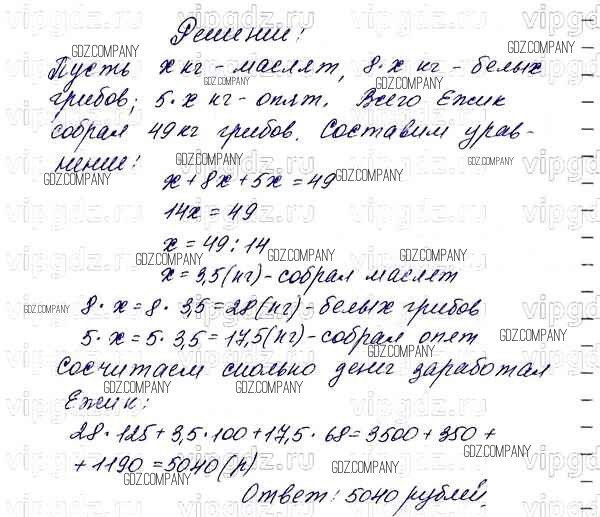 Решение:
Пусть x кг - маслят, 8·x кг - белых
грибов; 5·x кг - опят. Всего Ежик
собрал 49 кг грибов. Составим урав-
нение:
x + 8x + 5x = 49
14x = 49
x = 49 : 14
x = 3,5 (кг) - собрал маслят
8·x = 8·3,5 = 28 (кг) - белых грибов
5·x = 5·3,5 = 17,5 (кг) - собрал опят
Сосчитаем сколько денег заработал
Ежик:
28·125 + 3,5·100 + 17,5·68 = 3500 + 350 +
+ 1190 = 5040 (р)
Ответ: 5040 рублей.
GDZ.COMPANY
vipgdz.ru